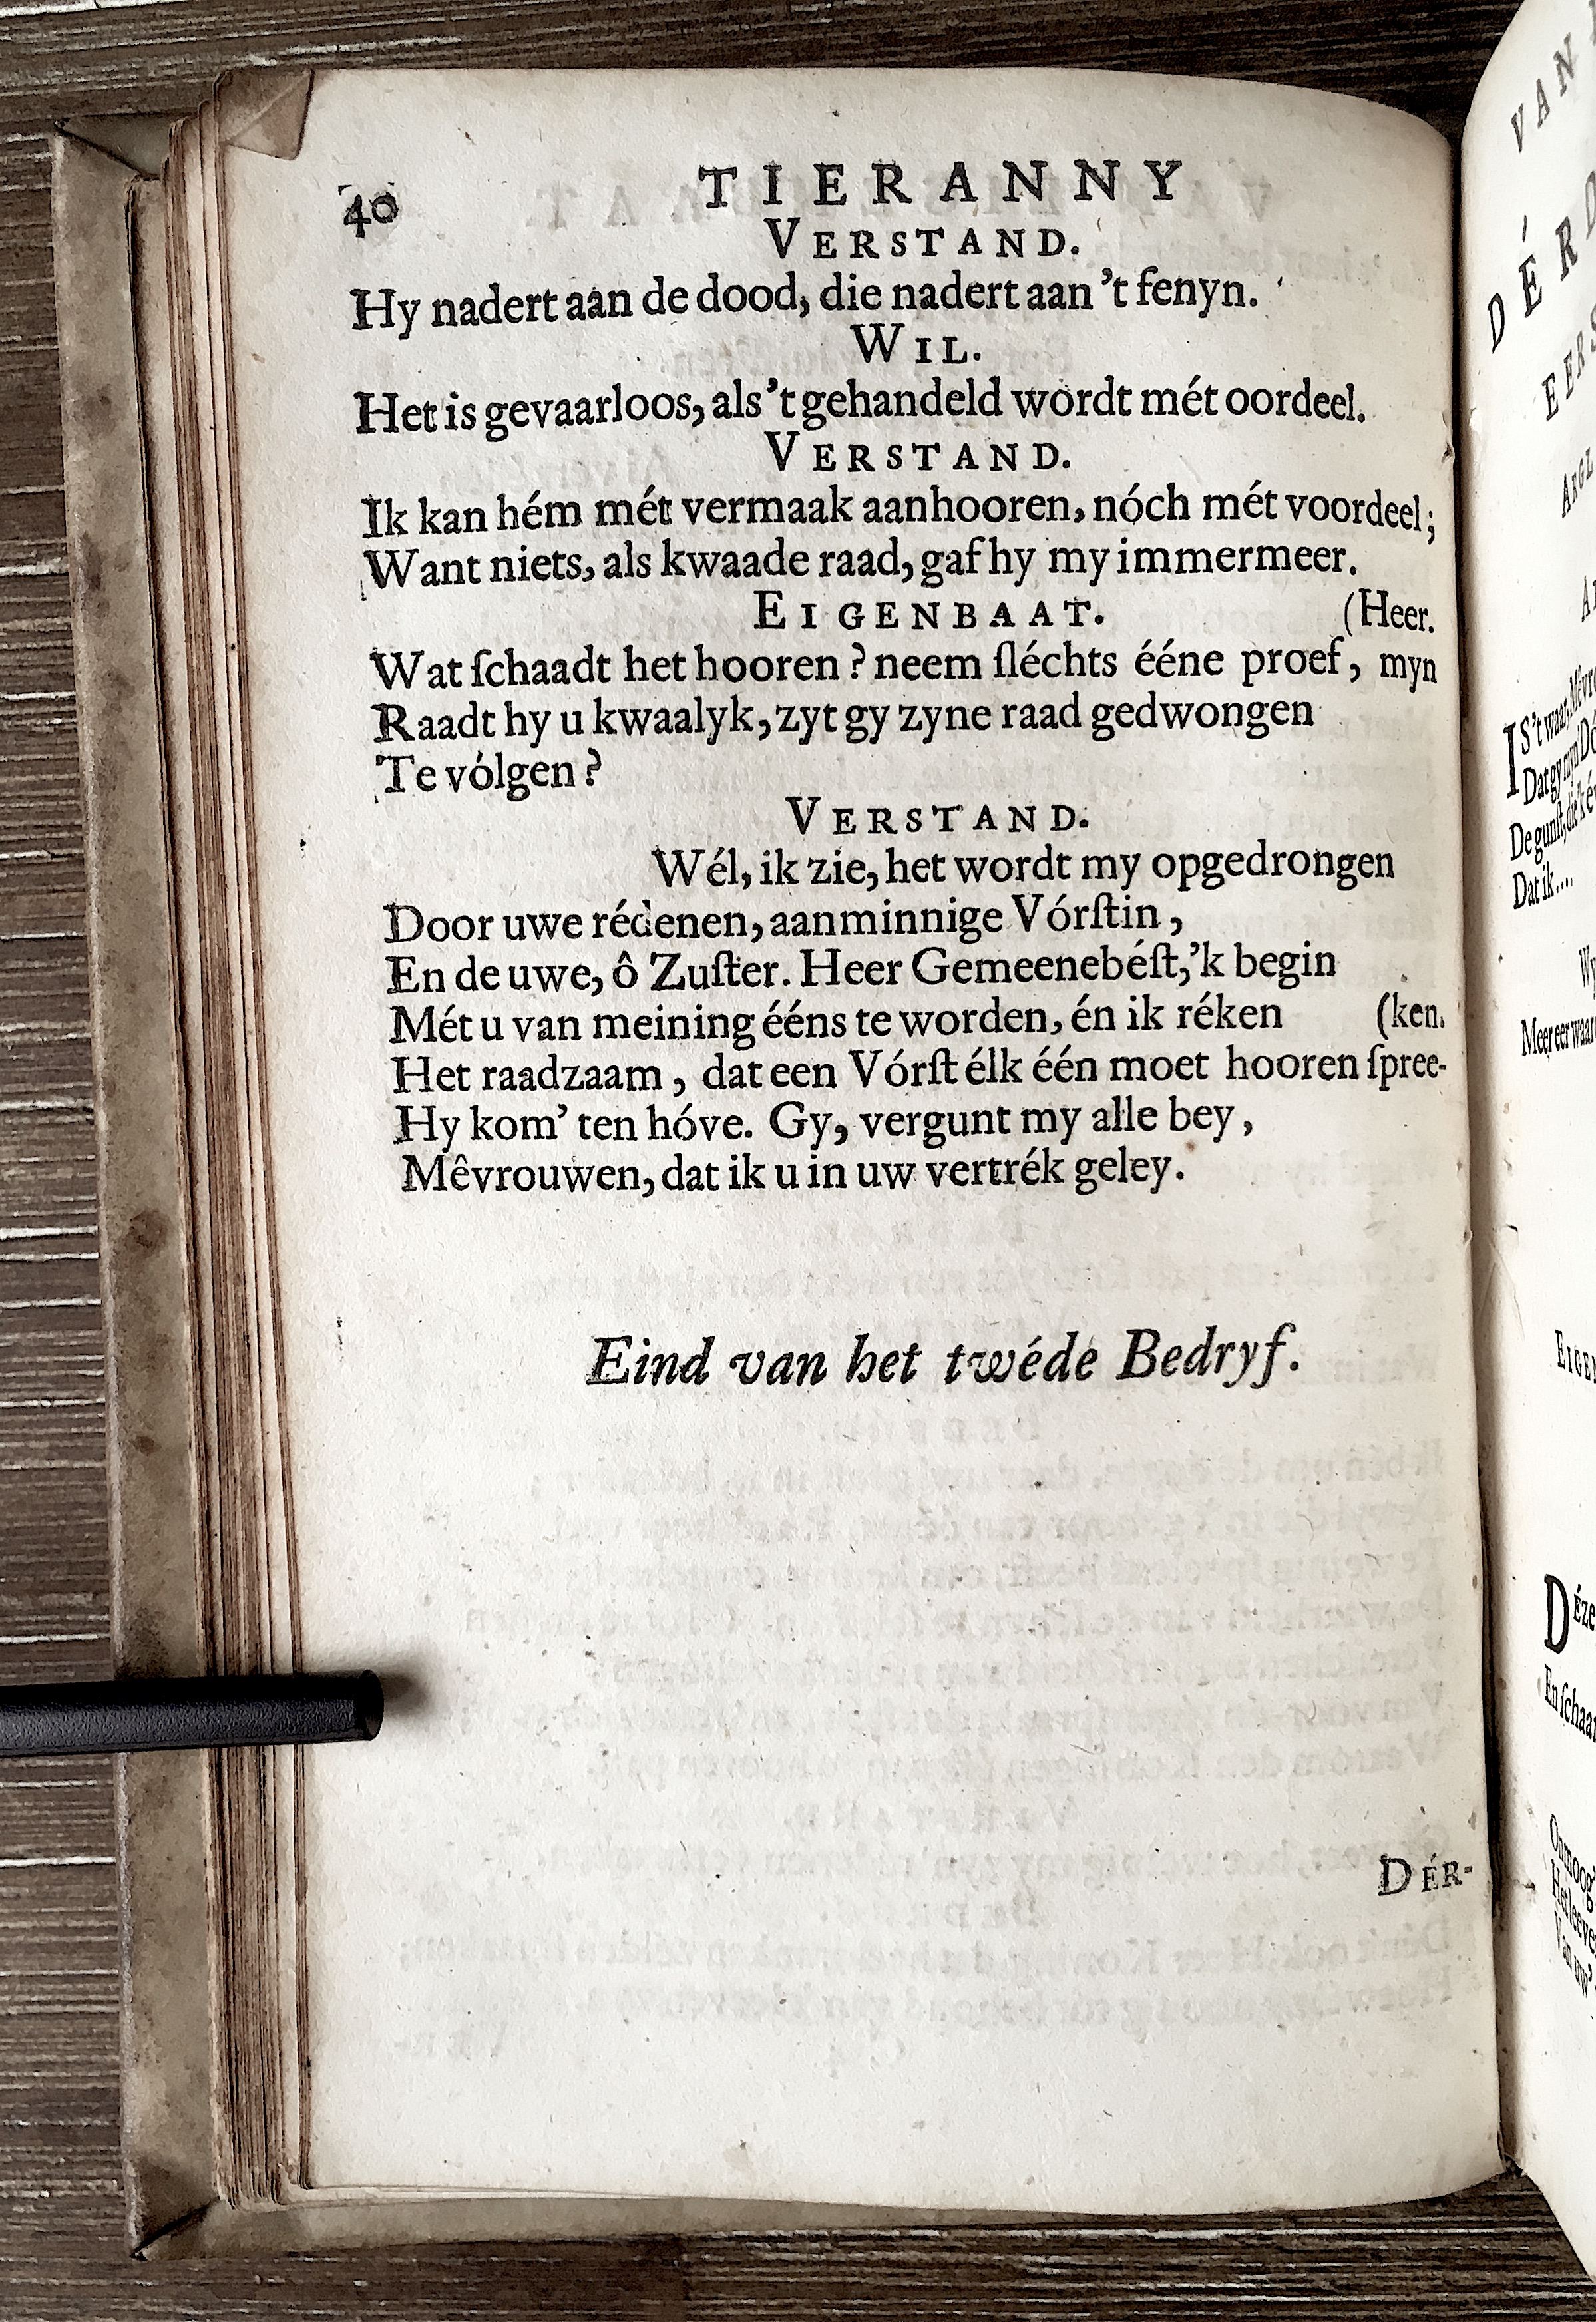 40 TIERANNY
VERSTAND.
Hy nadert aan de dood, die nadert aan 't fenyn.
WIL.
Het is gevaarloos, als 't gehandeld wordt mét oordeel.
VERSTAND.
Ik kan hém mét vermaak aanhooren, nóch mét voordeel;
Want niets, als kwaade raad, gaf hy my immermeer.
EIGENBAAT. (Heer.
Wat ſchaadt het hooren? neem ſléchts ééne proef, myn
Raadt hy u kwaalyk, zyt gy zyne raad gedwongen
Te vólgen?
VERSTAND.
Wél, ik zie, het wordt my opgedrongen
Door uwe rédenen, aanminnige Vórſtin,
En de uwe, ô Zuſter. Heer Gemeenebéſt, 'k begin
Mét u van meining ééns te worden, én ik réken (ken.
Het raadzaam, dat een Vórſt élk één moet hooren ſpree-
Hy kom' ten hóve. Gy, vergunt my alle bey,
Mêvrouwen, dat ik u in uw vertrék geley.
Eind van het twéde Bedryf.
DÉR-
VAN
DÉRD
EERS
IS't waar, Mêvr
Dat gy myn Dó
De gunſt, die k
Dat ik....
Meer eer waar
EIGE
Déze
En ſchaa
Onmoog
Het leeve
Van uw'